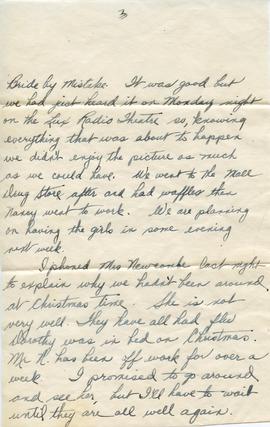 3
Bride by Mistake. It was good but
we had just heard it on Monday night
on the Lux Radio Theatre so, knowing
everything that was about to happen
we didn't enjoy the picture as much
as we could have. We went to the Mall
Drug Store after and had waffles then
Nancy went to work. We are planning
on having the girls in some evening
next week.
I phoned Mrs Newcombe last night
to explain why we hadn't been around
at Christmas time. She is not
very well. They have all had flu
Dorothy was in bed on Christmas.
Mr N. has been off work for over a
week. I promised to go around
and see her, but I'll have to wait
until they are all well again.